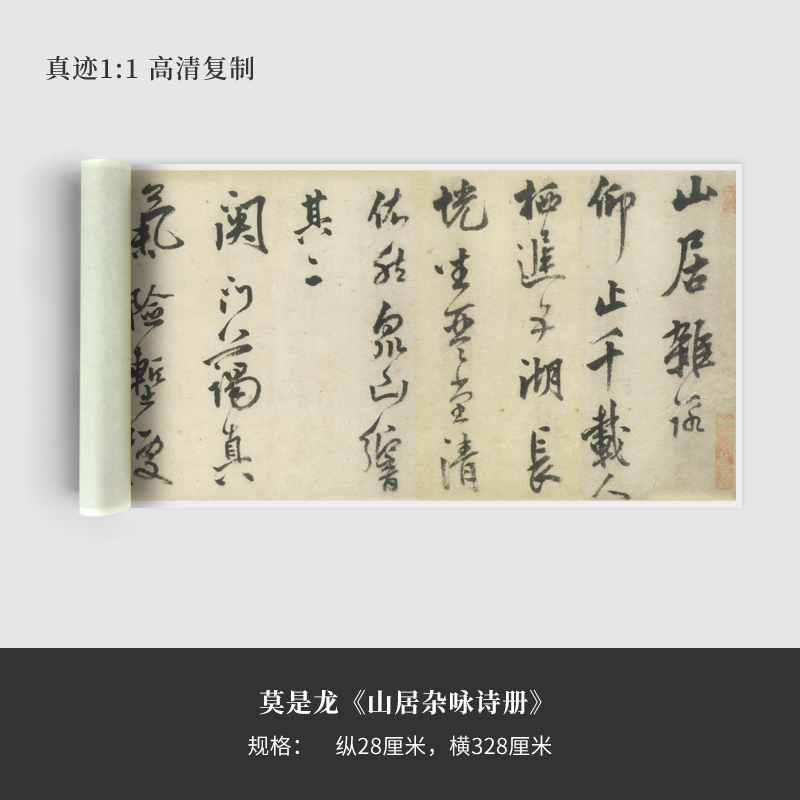 真迹1:1 高清复制
山居雜詠
仰止千載人
栖遲至湖長
恍坐琴堂清
依然泉山響
其二
闲门蔼真
氣險暫
莫是龙《山居杂咏诗册》
规格： 纵28厘米，横328厘米